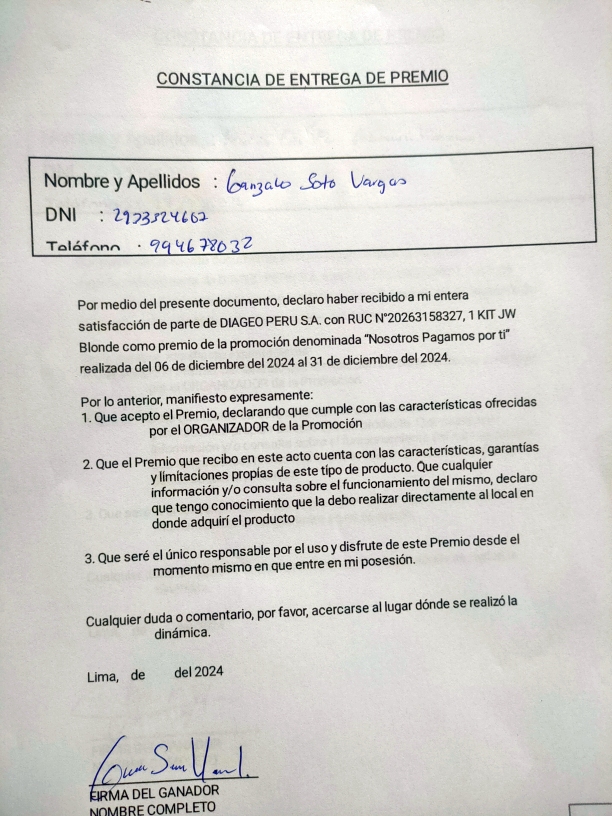 CONSTANCIA DE ENTREGA DE PREMIO
Nombre y Apellidos : Gonzalo Soto Vargas
DNI : 2923524662
Teléfono : 994678032
Por medio del presente documento, declaro haber recibido a mi entera
satisfacción de parte de DIAGEO PERU S.A. con RUC N°20263158327, 1 KIT JW
Blonde como premio de la promoción denominada “Nosotros Pagamos por ti”
realizada del 06 de diciembre del 2024 al 31 de diciembre del 2024.
Por lo anterior, manifiesto expresamente:
1. Que acepto el Premio, declarando que cumple con las características ofrecidas
por el ORGANIZADOR de la Promoción
2. Que el Premio que recibo en este acto cuenta con las características, garantías
y limitaciones propias de este tipo de producto. Que cualquier
información y/o consulta sobre el funcionamiento del mismo, declaro
que tengo conocimiento que la debo realizar directamente al local en
donde adquirí el producto
3. Que seré el único responsable por el uso y disfrute de este Premio desde el
momento mismo en que entre en mi posesión.
Cualquier duda o comentario, por favor, acercarse al lugar dónde se realizó la
dinámica.
Lima, de del 2024
FIRMA DEL GANADOR
NOMBRE COMPLETO